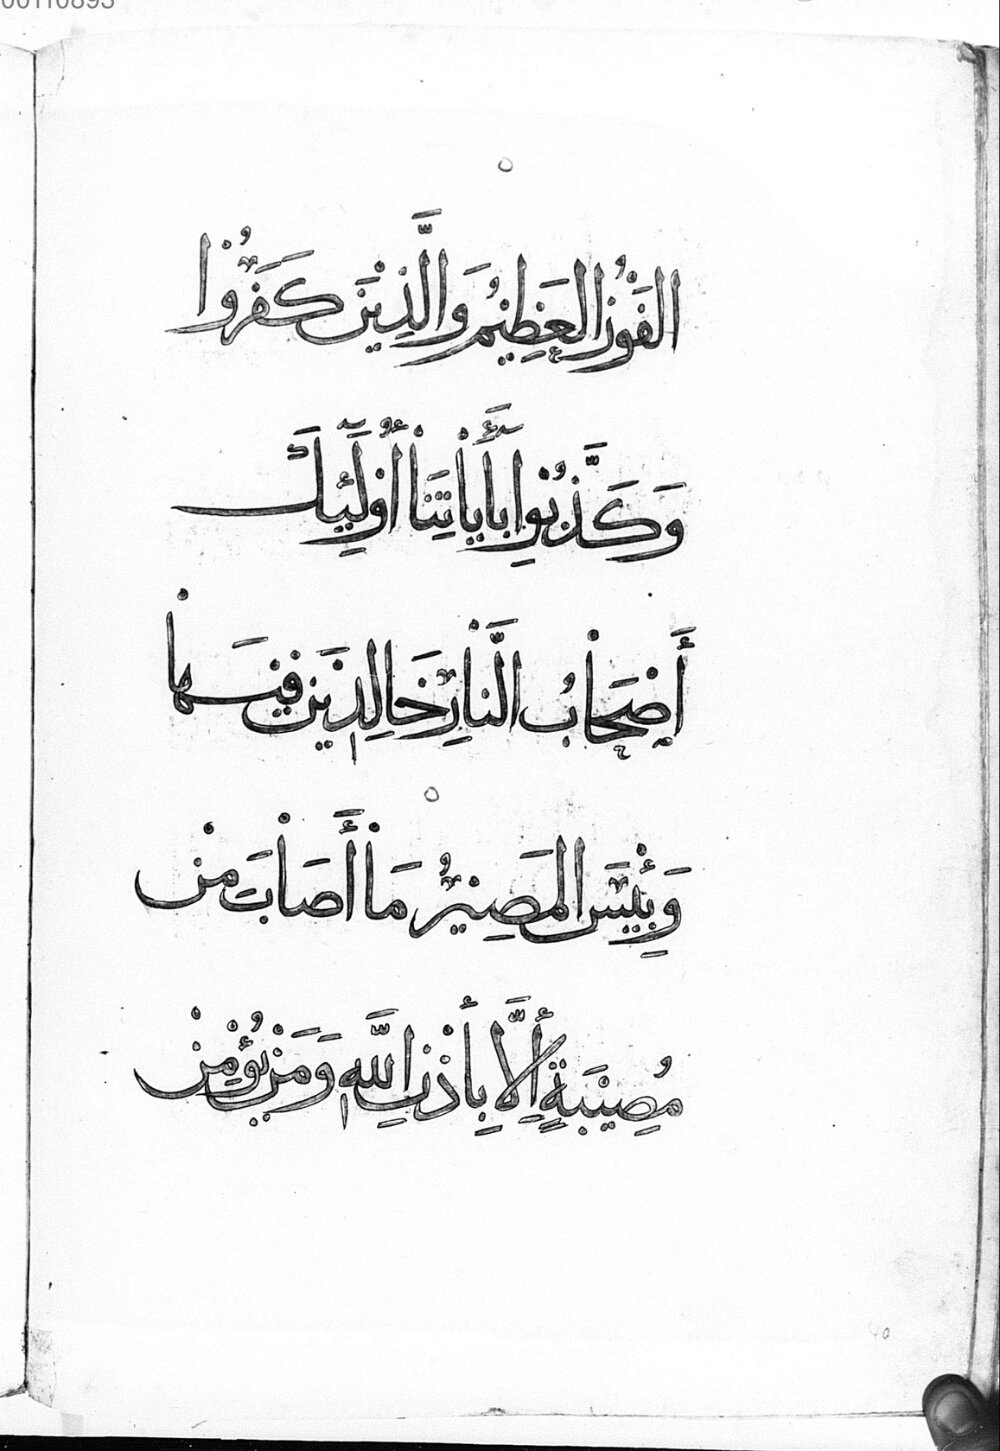 الفَوْزُ العَظِيْمُ وَالَّذِيْنَ كَفَرُوْا
وَكَذَّبُوْا بِأَيَاتِنَا أُوْلَٓئِكَ
أَصْحَابُ النَّارِ خَالِدِيْنَ فِيْهَا
وَبِئْسَ المَصِيْرُ مَا أَصَابَ مِنْ
مُصِيْبَةٍ إِلَّا بِأِذْنِ اللَّهِ وَمَنْ يُؤْمِنْ